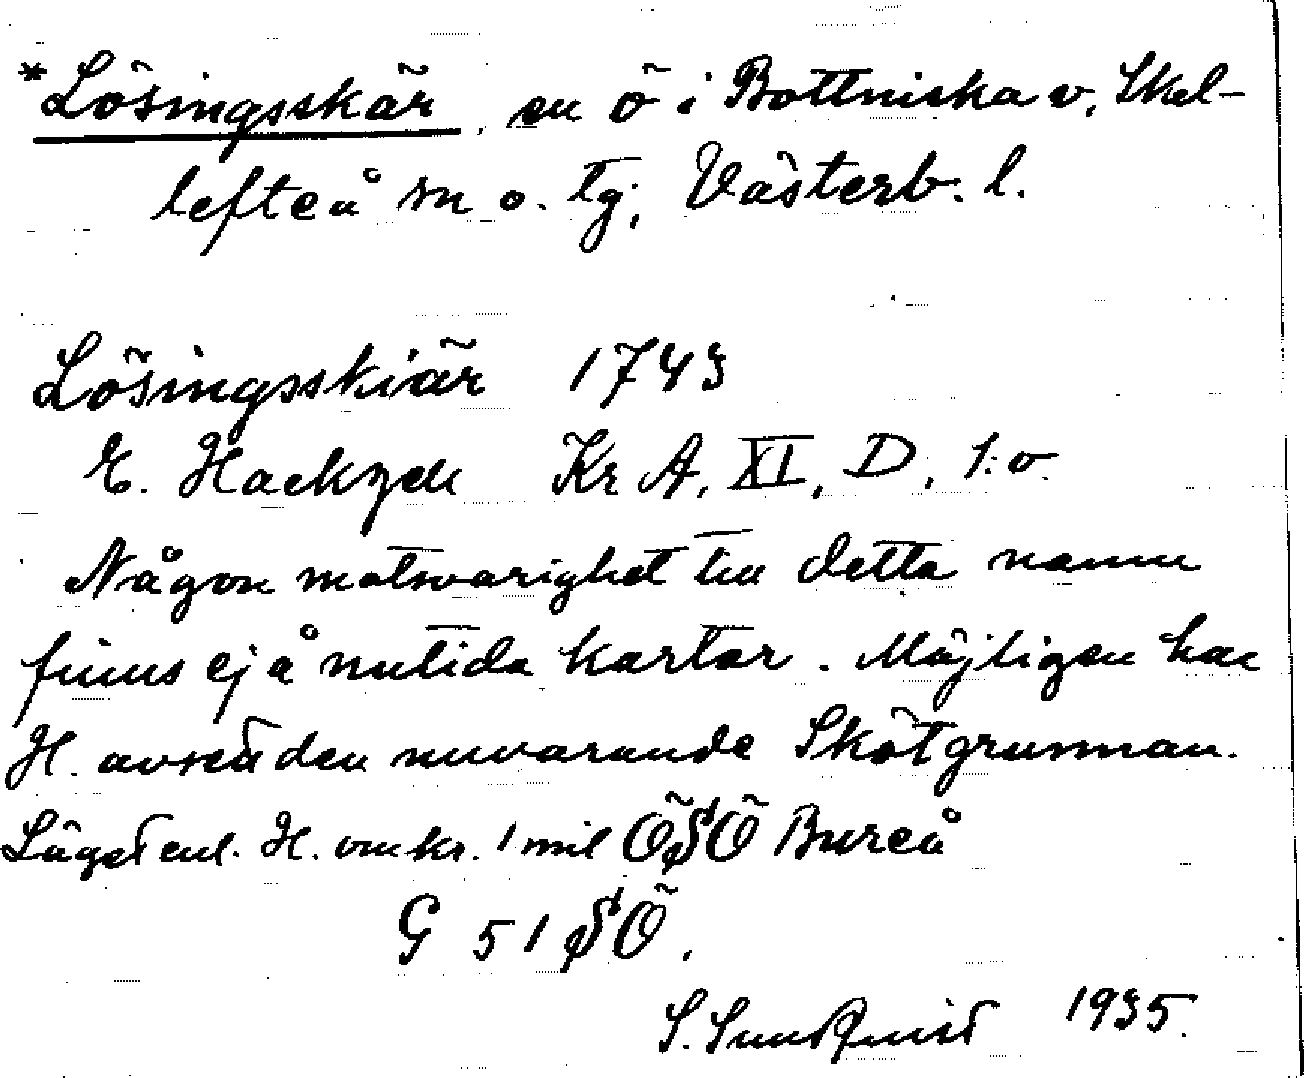 *Lösingsskär, en ö i Bottniska v, Skel-
lefteå sn o. tg, Västerb. l.
Lösingsskiär 1743
E. Hackzell KrA, XI, D, 1:o
Någon motsvarighet till detta namn
finns ej å nutida kartor. Möjligen har
H. avsett den nuvarande Skötgrunnan.
Läget enl. H. omkr. 1 mil ÖSÖ Bureå
G 51 SÖ.
S. Sundqvist 1935.